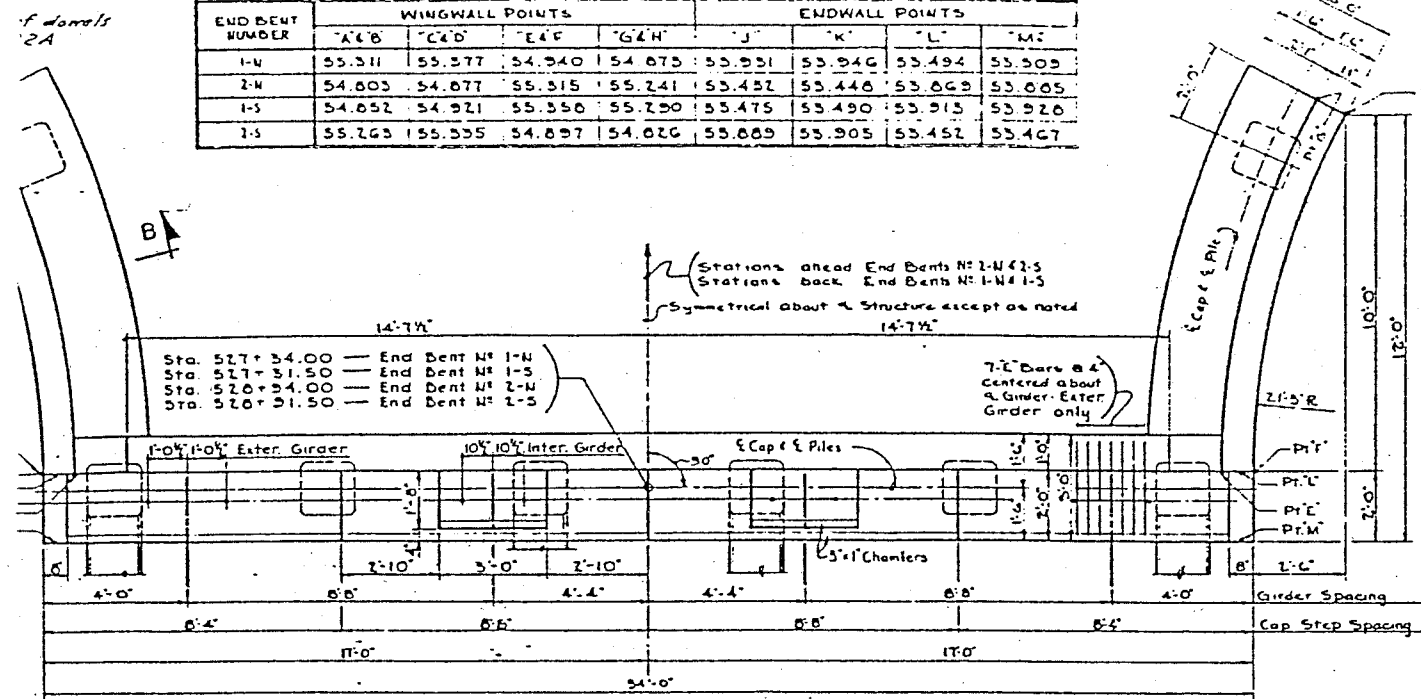 2A
END BENT NUMBER | WINGWALL POINTS | ENDWALL POINTS
"A"&"B" "C"&"D" "E"&"F" "G"&"H" "J" "K" "L" "M"
1-N 55.311 55.377 54.940 54.875 53.931 53.946 53.494 53.509
2-N 54.803 54.877 55.315 55.241 53.432 53.448 53.869 53.885
1-S 54.852 54.921 55.358 55.290 53.475 53.490 53.913 53.928
2-S 55.263 55.335 54.897 54.826 53.889 53.905 53.452 53.467
1'-6"
2'-0"
11"
B
Stations ahead End Bents Nº 2-N & 2-S
Stations back End Bents Nº 1-N & 1-S
Symmetrical about ℄ Structure except as noted
℄ Cap & ℄ Pile
10'-0"
12'-0"
14'-7½" 14'-7½"
Sta. 527+34.00 — End Bent Nº 1-N
Sta. 527+31.50 — End Bent Nº 1-S
Sta. 528+94.00 — End Bent Nº 2-N
Sta. 528+91.50 — End Bent Nº 2-S
7-"E" Bars @ 4"
centered about
℄ Girder-Exter.
Girder only
21'-3" R
1'-0½" 1'-0½" Exter. Girder
10½" 10½" Inter. Girder
90°
℄ Cap & ℄ Piles
1'-6" 1'-0"
Pt. "F"
Pt. "L"
Pt. "E"
Pt. "M"
1'-8"
4"
1'-6" 2'-0" 3'-0"
2'-0"
3"x1" Chamfers
8" 2'-10" 3'-0" 2'-10" 8" 2'-6"
4'-0" 8'-8" 4'-4" 4'-4" 8'-8" 4'-0" Girder Spacing
8'-4" 8'-8" 8'-8" 8'-4" Cap Step Spacing
17'-0" 17'-0"
34'-0"